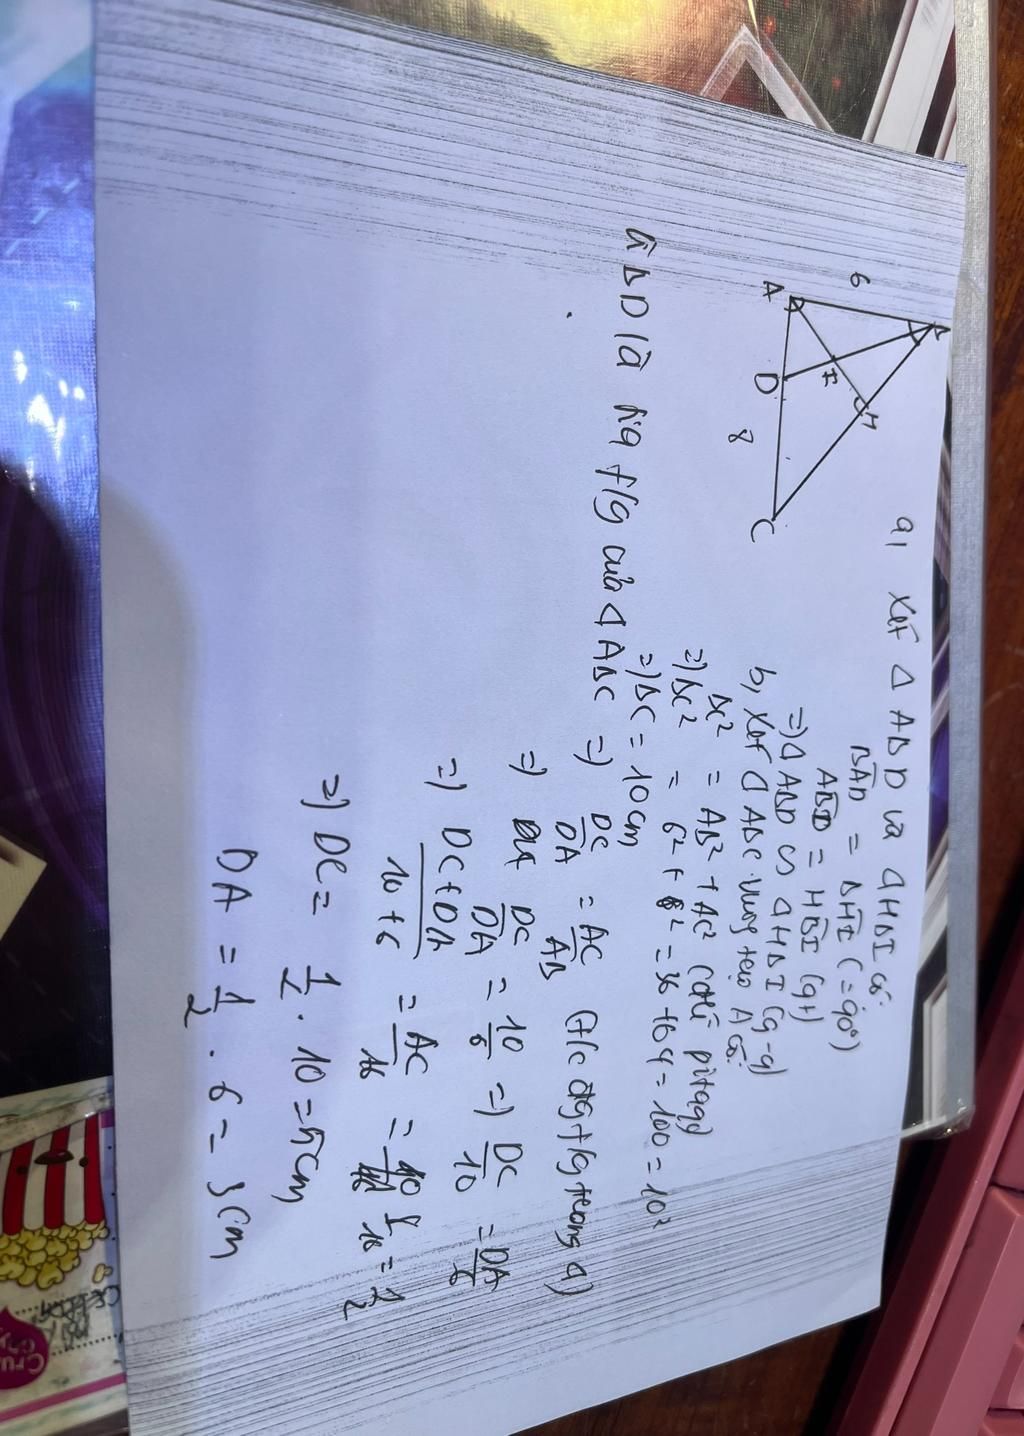 a, Xét Δ ABD và ΔHBI có:
BAD = BHI (= 90°)
ABD = HBI (gt)
=) Δ ABD ∽ ΔHBI (g-g)
b, Xét Δ ABC vuông tại A có:
BC² = AB² + AC² (pitago)
=) BC² = 6² + 8² = 36 + 64 = 100 = 10²
=) BC = 10cm
BD là f/g của Δ ABC =) DC/DA = AC/AB (t/c f/g trong Δ)
=) DC/DA = 10/6 =) DC/10 = DA/6
=) DC+DA/10+6 = AC/16 = 8/16 = 1/2
=) DC = 1/2 . 10 = 5cm
DA = 1/2 . 6 = 3cm
6
A
B
D
I
H
8
C